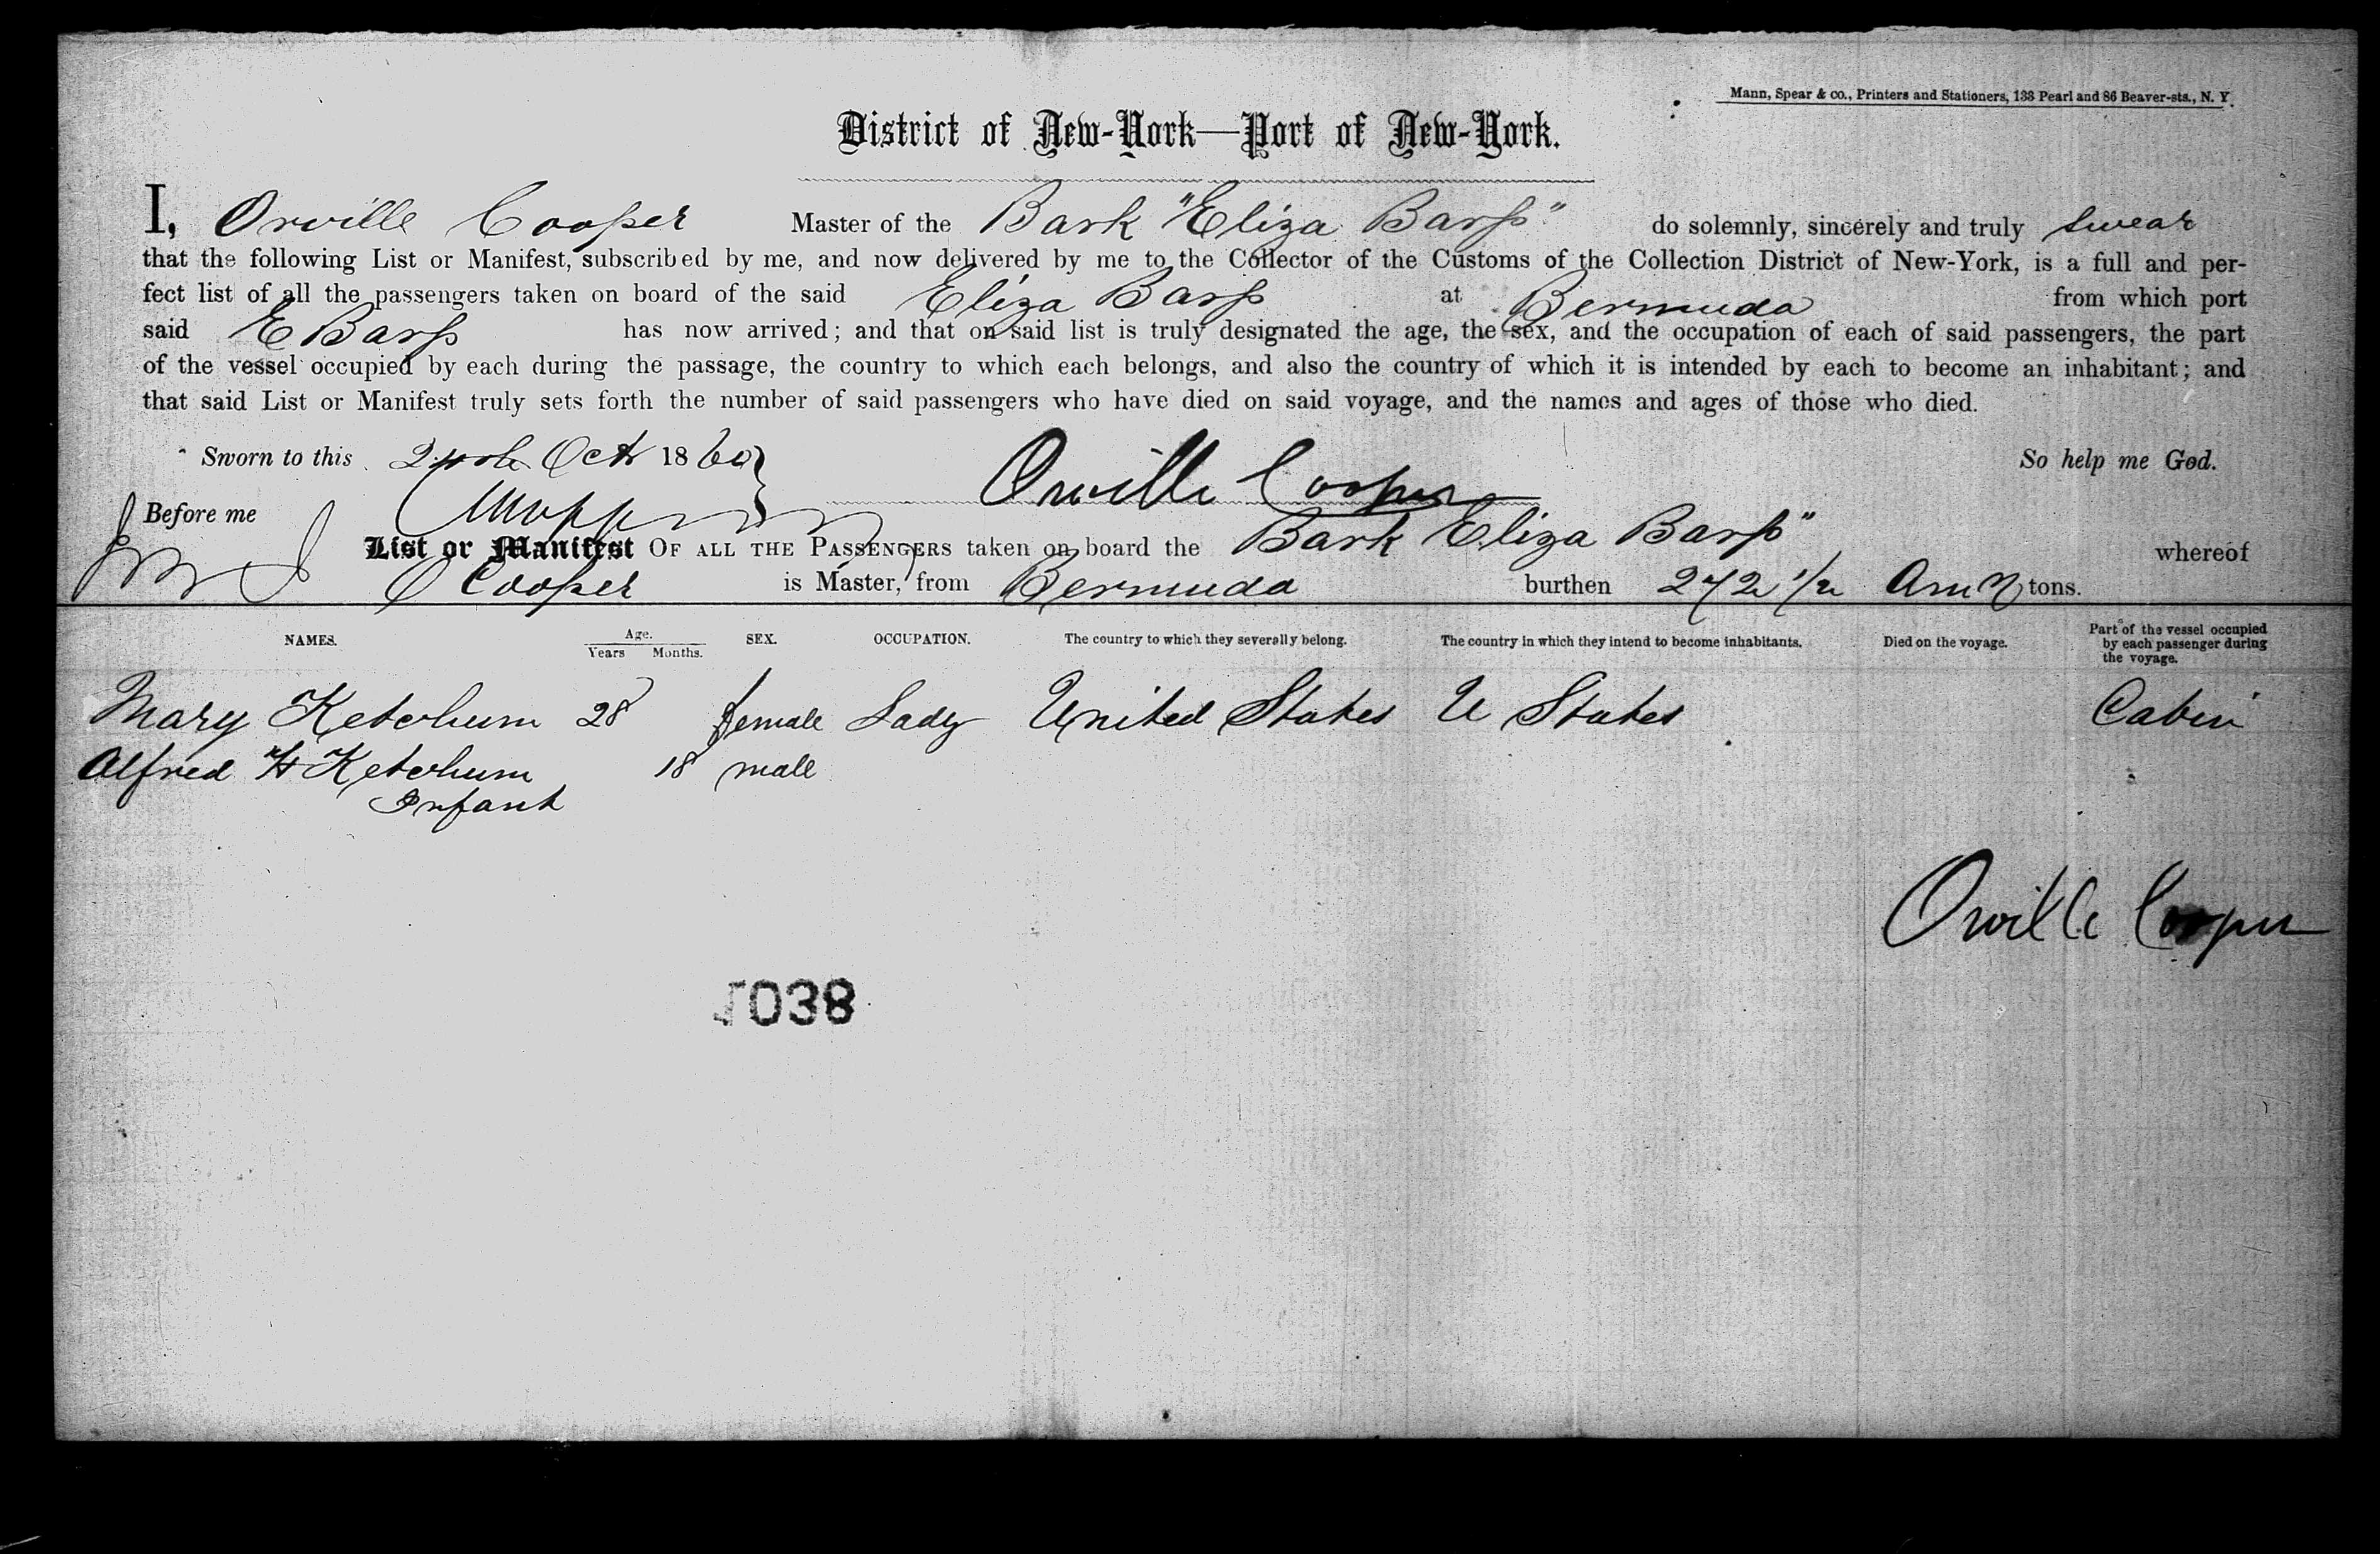 Mann, Spear & co., Printers and Stationers, 133 Pearl and 86 Beaver-sts., N. Y.
District of New-York—Port of New-York.
I, Orville Cooper Master of the Bark "Eliza Barss" do solemnly, sincerely and truly swear
that the following List or Manifest, subscribed by me, and now delivered by me to the Collector of the Customs of the Collection District of New-York, is a full and per-
fect list of all the passengers taken on board of the said Eliza Barss at Bermuda from which port
said E Barss has now arrived; and that on said list is truly designated the age, the sex, and the occupation of each of said passengers, the part
of the vessel occupied by each during the passage, the country to which each belongs, and also the country of which it is intended by each to become an inhabitant; and
that said List or Manifest truly sets forth the number of said passengers who have died on said voyage, and the names and ages of those who died.
Sworn to this Oct 1860 So help me God.
Orville Cooper
Before me
List or Manifest OF ALL THE PASSENGERS taken on board the Bark Eliza Barss" whereof
O Cooper is Master, from Bermuda burthen 272 1/2 tons.
NAMES. Age. Years Months. SEX. OCCUPATION. The country to which they severally belong. The country in which they intend to become inhabitants. Died on the voyage. Part of the vessel occupied by each passenger during the voyage.
Mary Ketchum 28 female Lady United States U States Cabin
Alfred H Ketchum 18 male
Infant
Orville Cooper
1038